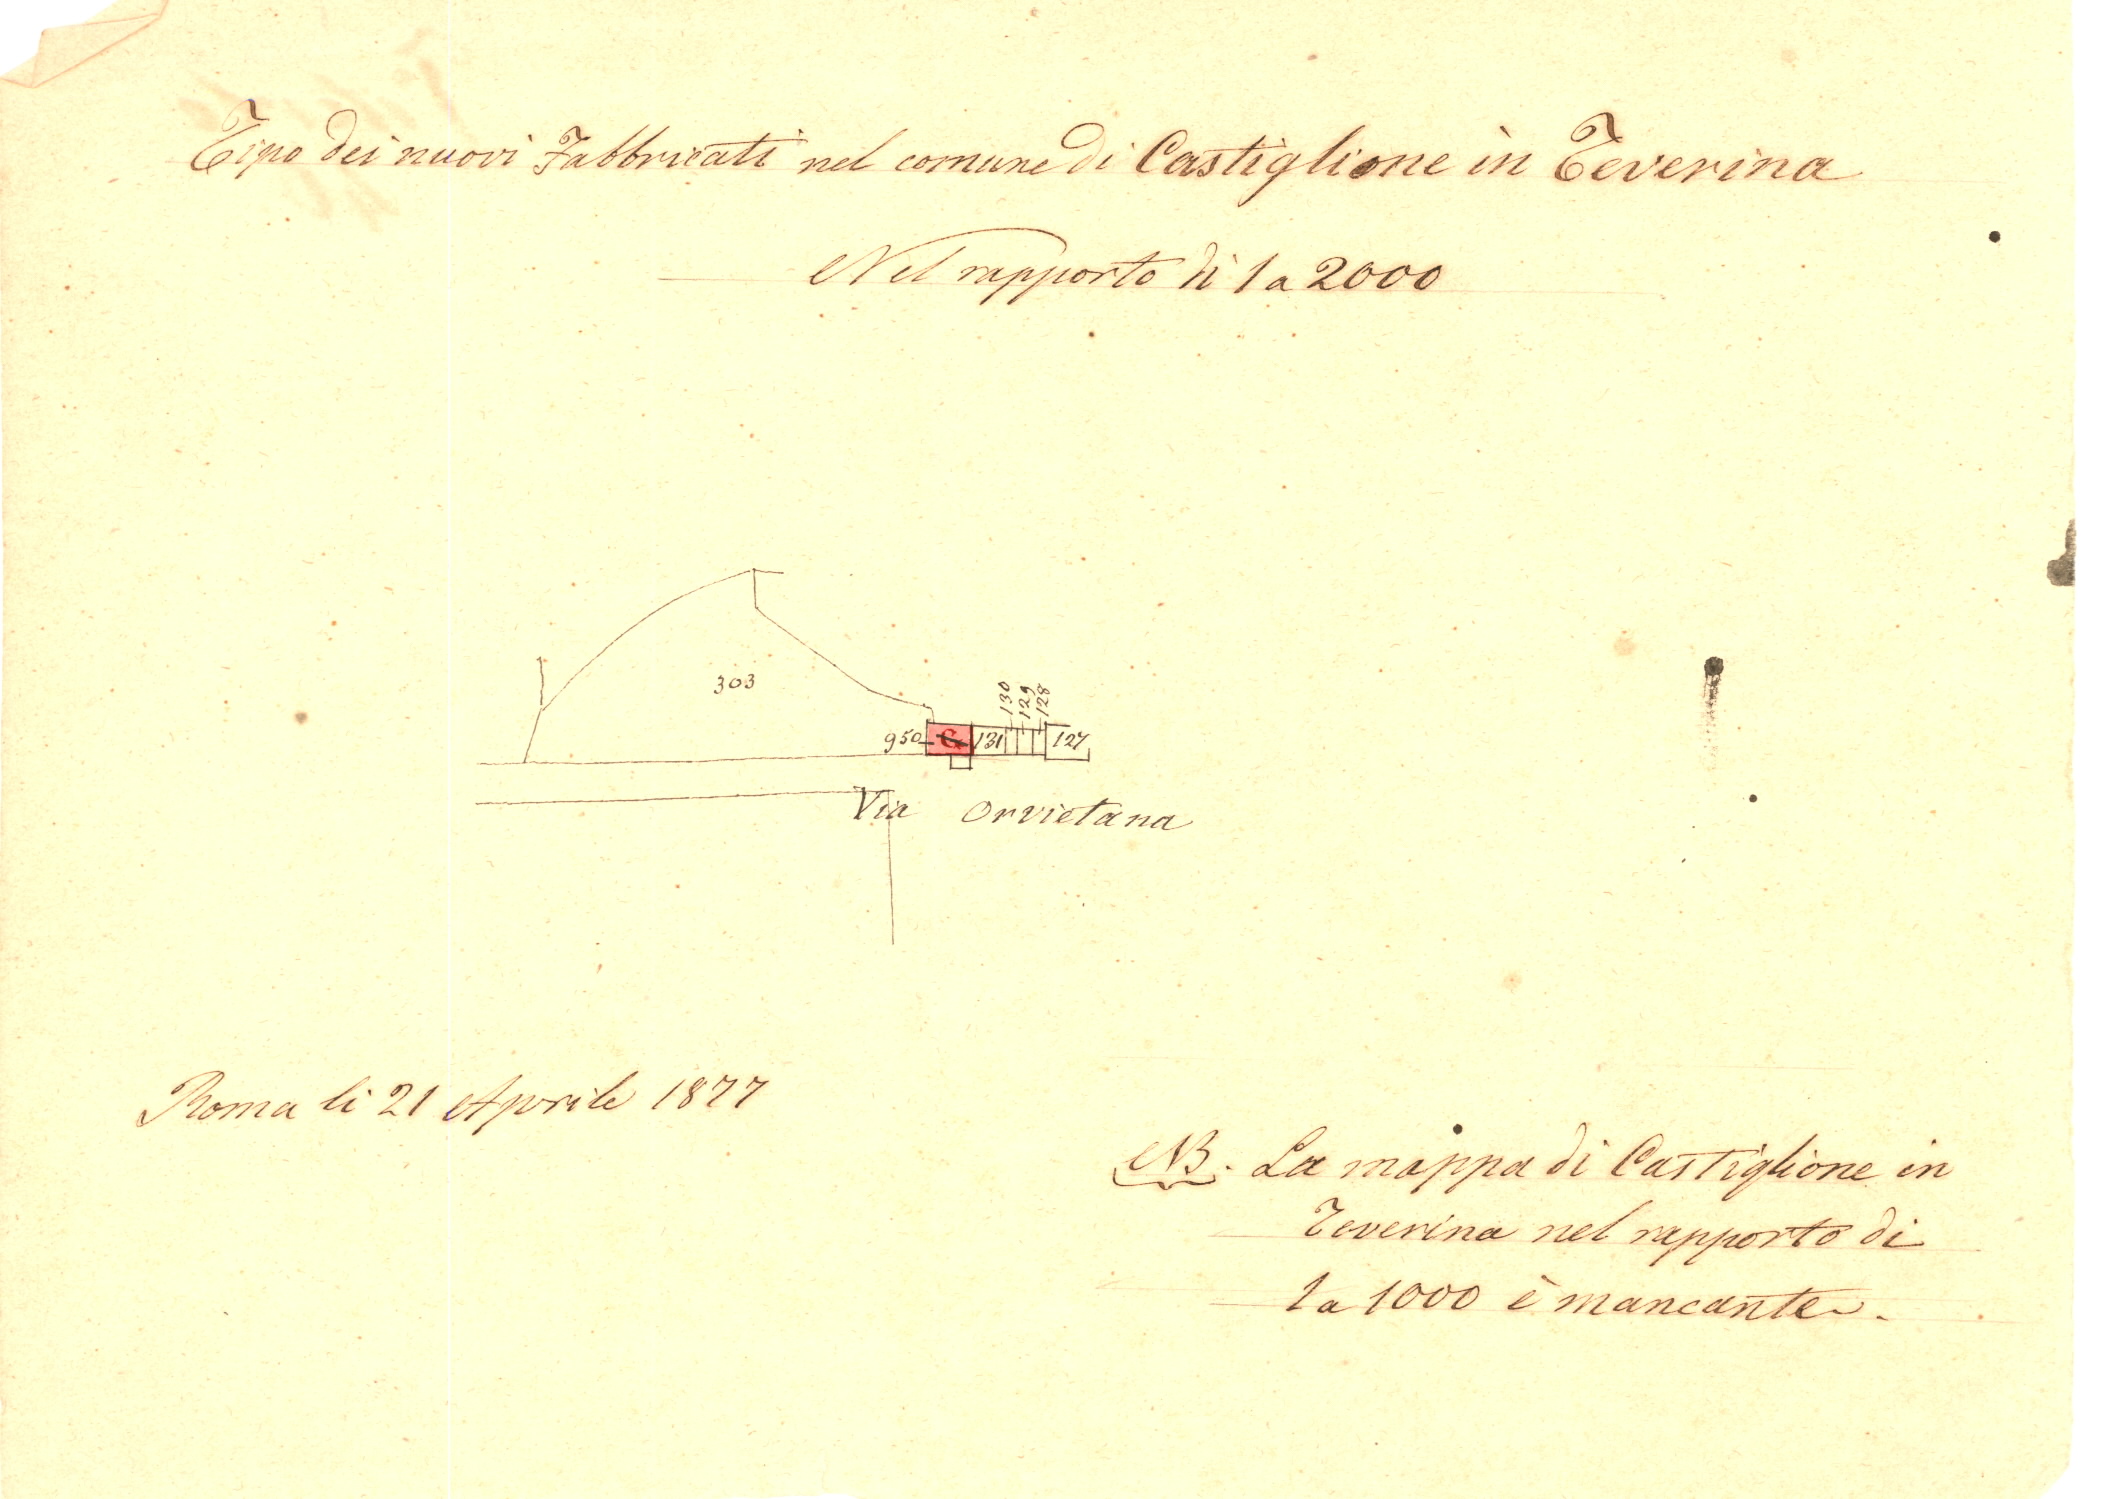 Tipo dei nuovi Fabbricati nel comune di Castiglione in Teverina
Nel rapporto di 1 a 2000
303
130
129
128
950
131
127
Via Orvietana
Roma li 21 Aprile 1877
NB. La mappa di Castiglione in
Teverina nel rapporto di
1 a 1000 è mancante.